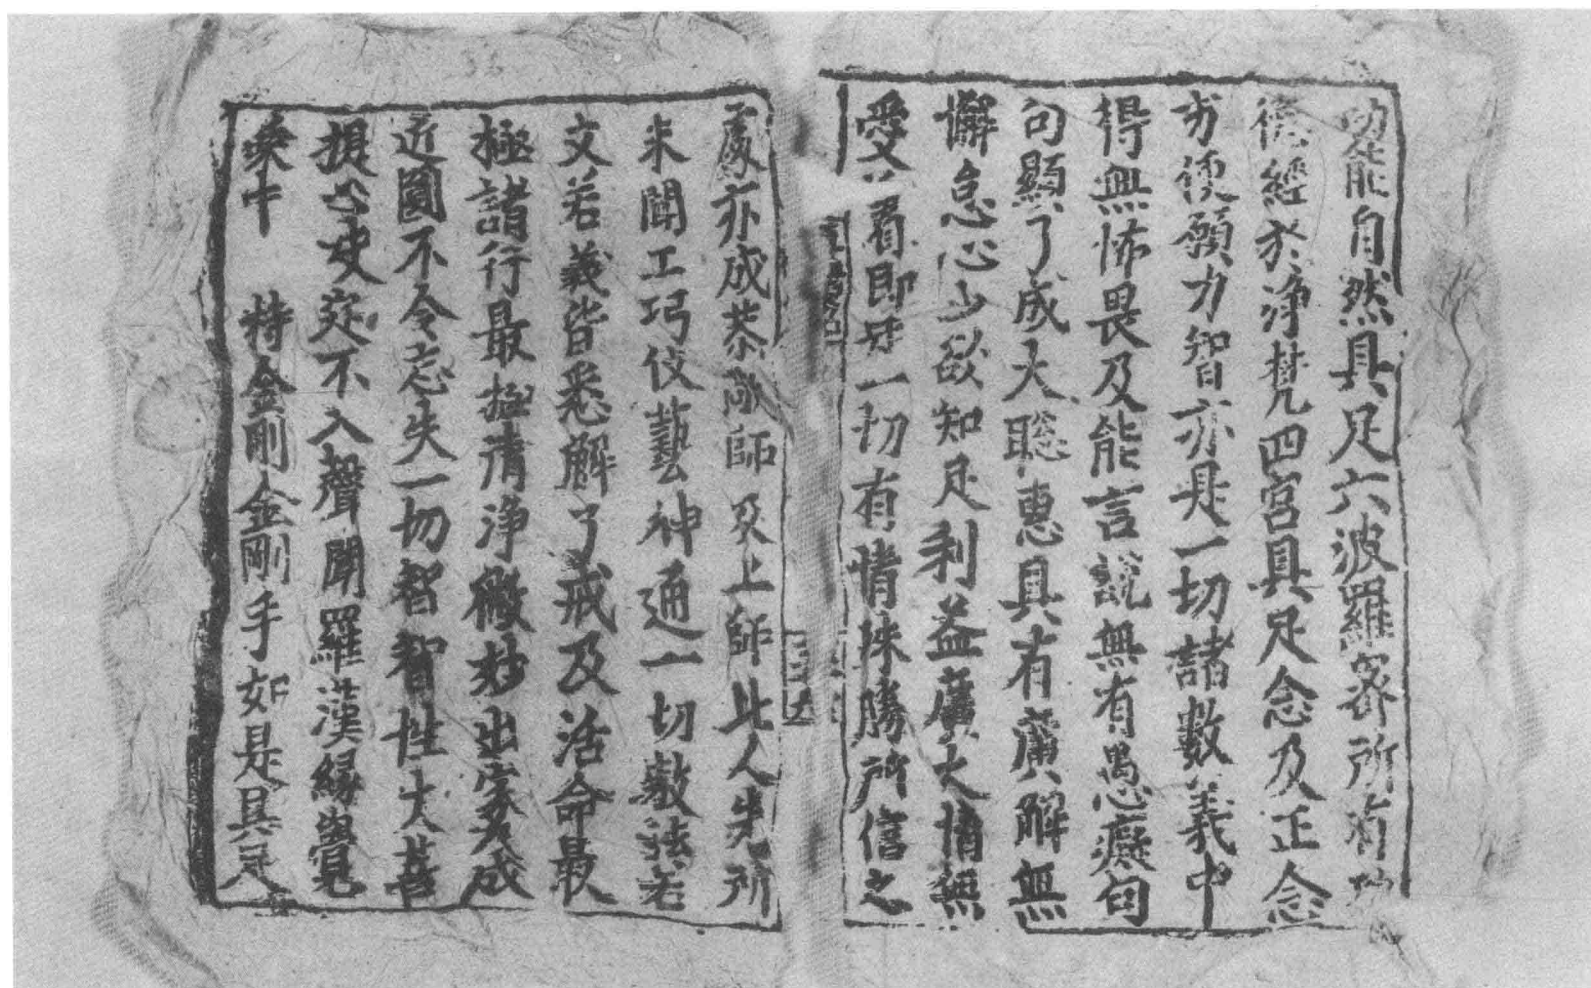 功能自然具足六波羅蜜所有功
德經於淨梵四宮具足念及正念
方便願力智亦是一切諸數義中
得無怖畏及能言說無有愚癡句
句顯了成大聡惠具有廣解無
懈怠心少欲知足利益廣大情無
愛著即是一切有情殊勝所信之
處亦成恭敬師及上師此人先所
未聞工巧伎藝神通一切教法若
文若義皆悉解了戒及活命最
極諸行最極清淨微妙出家羙成
近圓不令忘失一切智智性大菩
提心決定不入聲聞羅漢緣覺
乘中　持金剛金剛手如是具足